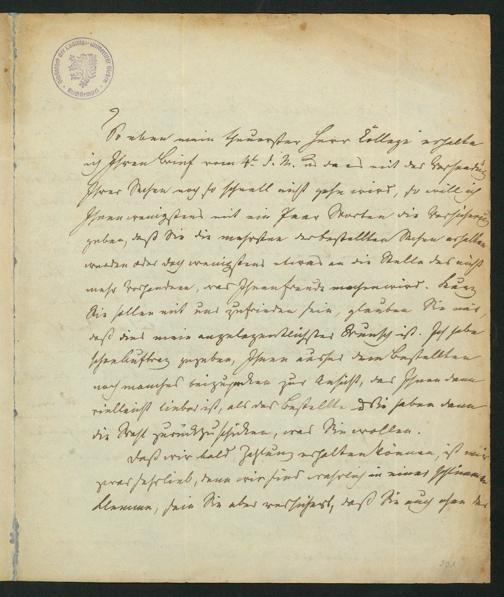 So eben mein theuerster Herr College erhalte
ich Ihren Brief vom 4t. d. M. u da es mit der Versendung
Ihrer Sachen noch so schnell nicht gehn wird, so will ich
Ihnen wenigstens mit ein Paar Worten die Versicherung
geben, daß Sie die mehrsten der bestellten Sachen erhalten
werden oder doch wenigstens etwas an die Stelle des nicht
mehr Vorhandenen, was Ihnen Freude machen wird. Kurz
Sie sollen mit uns zufrieden sein, glauben Sie mir,
daß dies mein angelegentlichster Wunsch ist. Ich habe
schon Auftrag gegeben, Ihnen außer dem Bestellten
noch manches beizupacken zur Ansicht, das Ihnen dann
vielleicht lieber ist, als das Bestellte u Sie haben dann
die Wahl zurückzuschicken, was Sie wollen.
Daß wir bald Zahlung erhalten können, ist mir
zwar sehr lieb, denn wir sind wahrlich in einer
klemme, sein Sie aber versichert, daß Sie auch ohne das